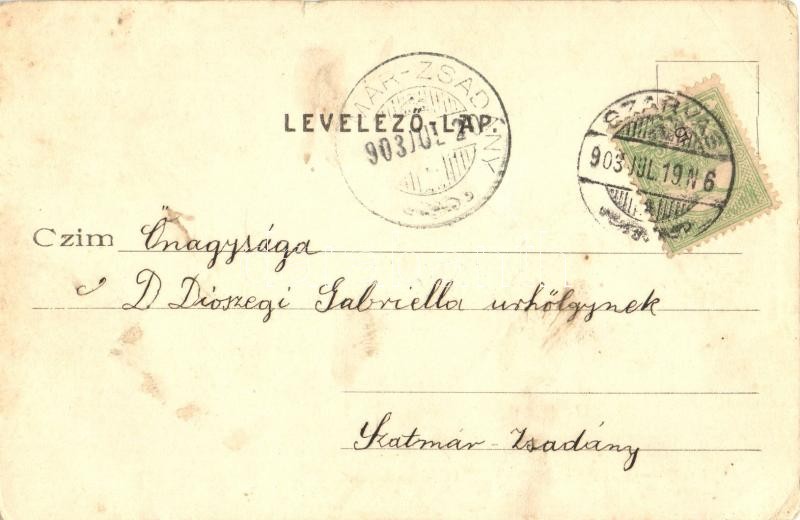 MÁR-ZSADÁNY
903 JUL 2
LEVELEZŐ-LAP.
SZARVAS
903 JUL. 19. N 6
Czim Őnagysága
D Dioszegi Gabriella urhölgynek
Szatmár-Zsadány